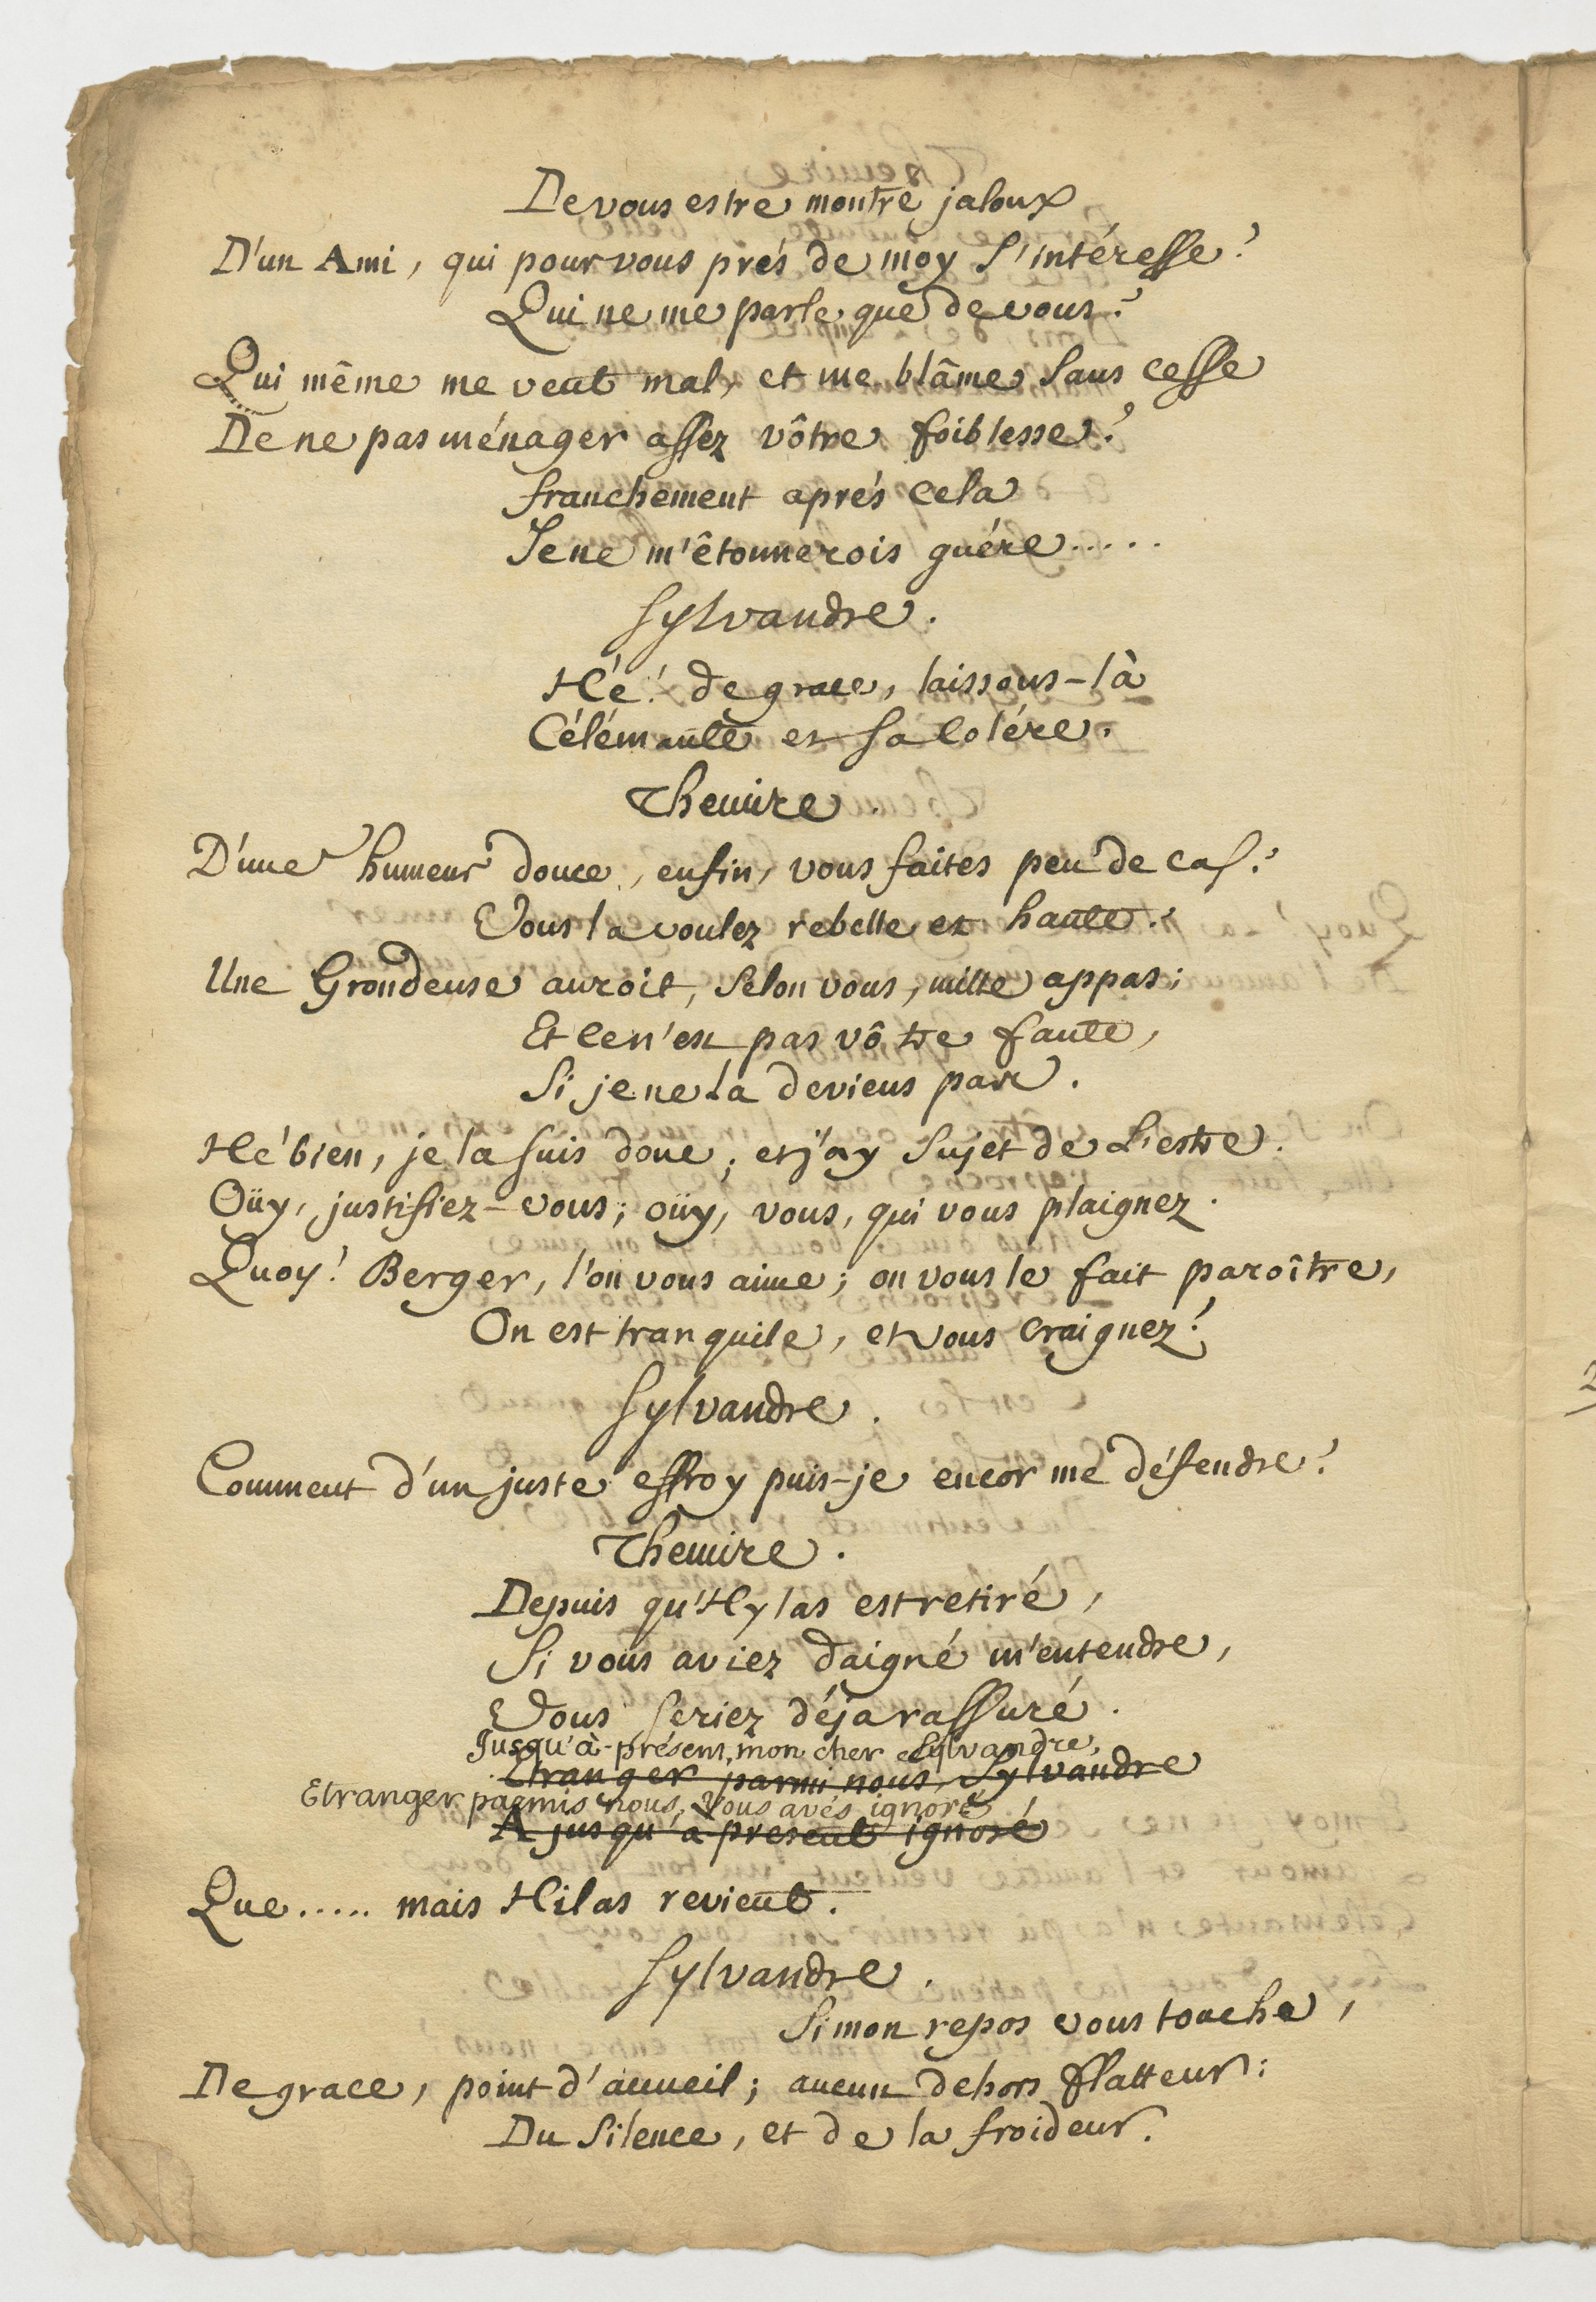 De vous estre montré jaloux
D'un Ami, qui pour vous prés de moy s'intéresse?
Qui ne me parle que de vous?
Qui même me veut mal, et me blâme sans cesse
De ne pas ménager assez vôtre foiblesse?
franchement aprés cela
Je ne m'êtonnerois guére.....
Sylvandre.
Hé! de grace, laissons-là
Célémante et sa colére.
Themire.
D'une humeur douce, enfin, vous faites peu de cas?
Vous la voulez rebelle et haute?
Une Grondeuse auroit, selon vous, mille appas;
Et ce n'est pas vôtre faute,
Si je ne la deviens pas.
Hé bien, je la suis donc; et j'ay sujet de L'estre.
Oüy, justifiez-vous; oüy, vous, qui vous plaignez.
Quoy! Berger, l'on vous aime; on vous le fait paroître,
On est tranquile, et vous craignez!
Sylvandre.
Comment d'un juste effroy puis-je encor me défendre?
Themire.
Depuis qu'Hylas est retiré,
Si vous aviez daigné m'entendre,
Vous seriez déja rassuré.
Jusqu'à-présent, mon cher Sylvandre,
Etranger parmi nous, Sylvandre
Etranger parmis nous, Vous avés ignoré
A jusqu'à present ignoré
Que..... mais Hilas revient.
Sylvandre.
Si mon repos vous touche,
De grace, point d'accueil; aucun dehors flatteur:
Du silence, et de la froideur.